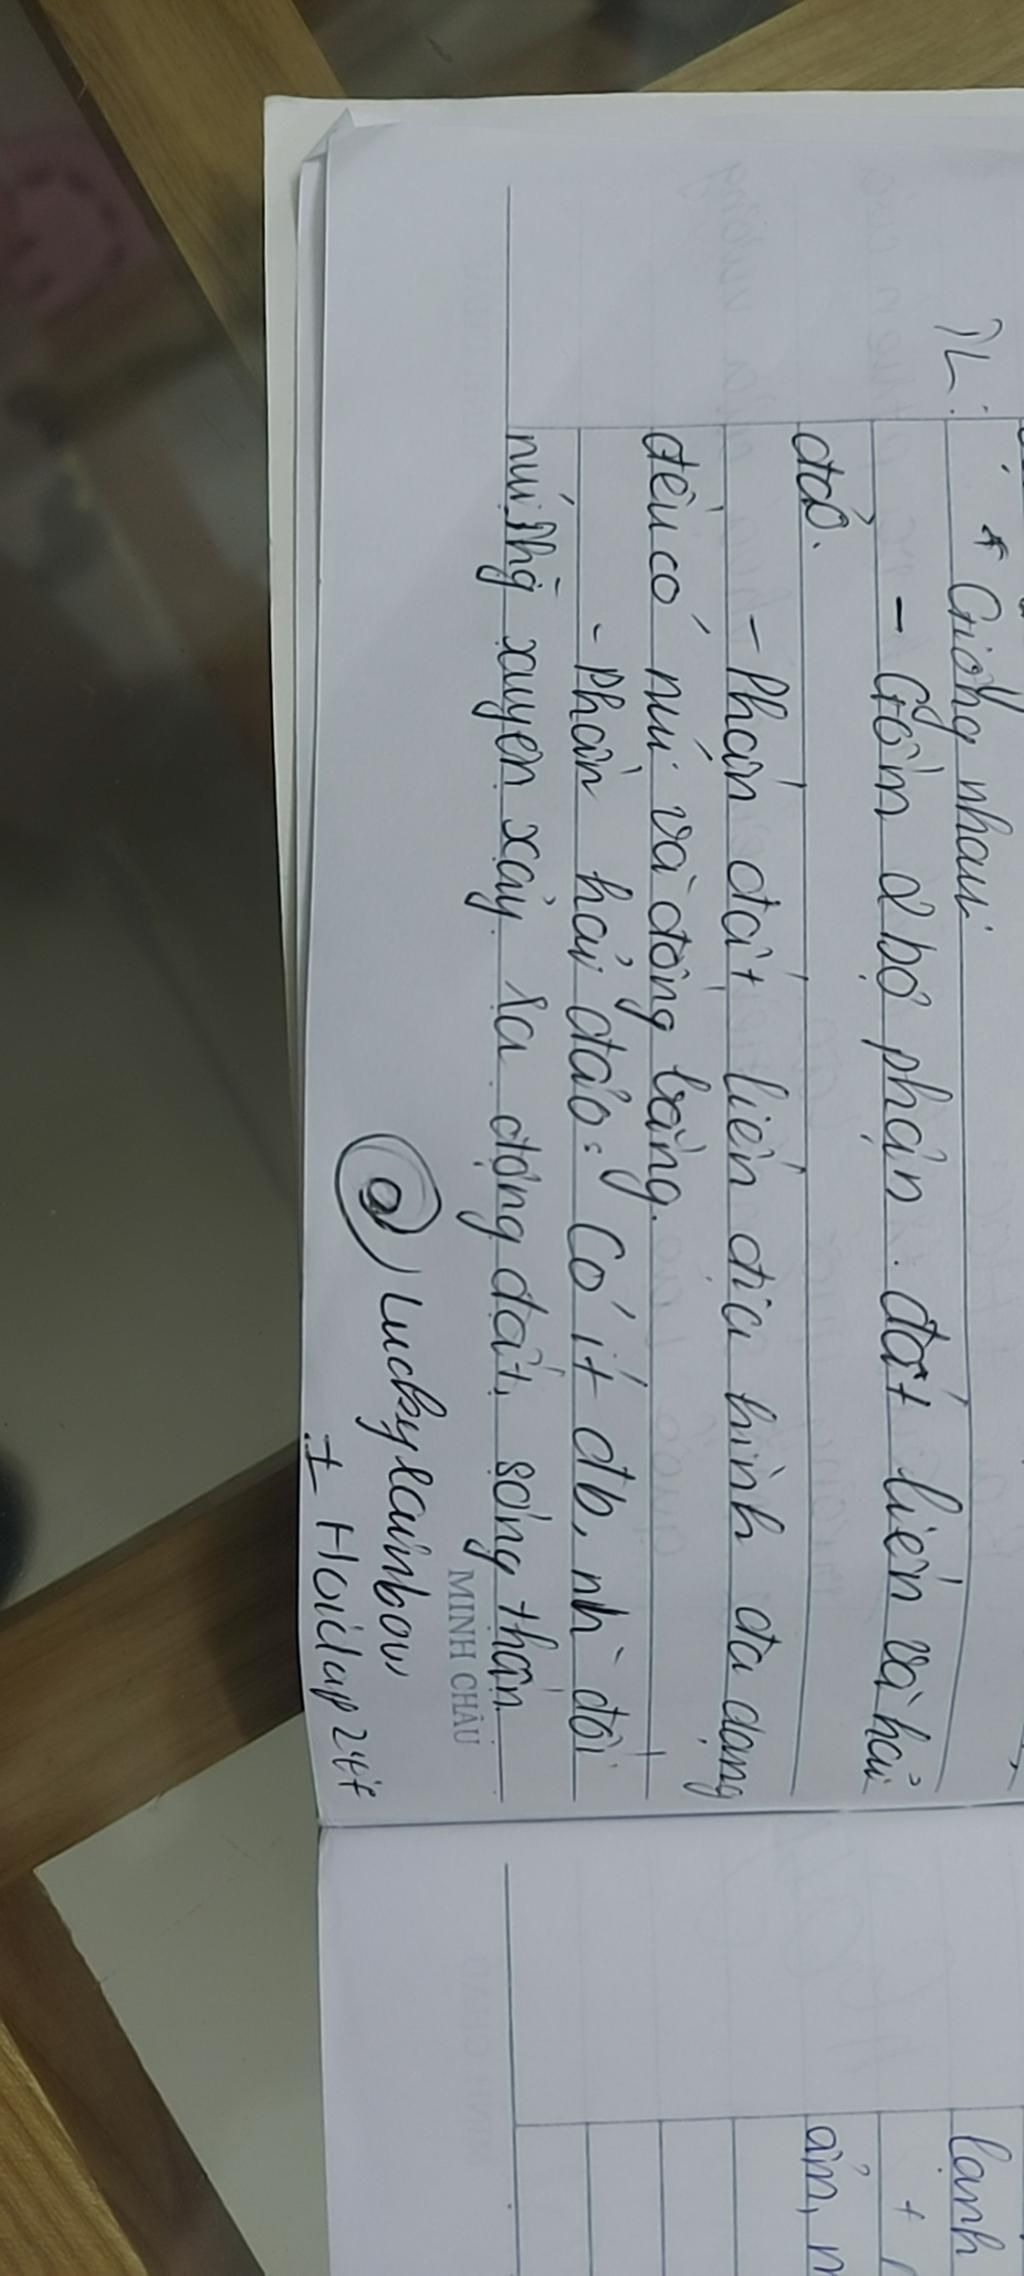 TL:
* Giống nhau:
- Gồm 2 bộ phận: đất liền và hải
đảo.
- Phần đất liền địa hình đa dạng
đều có núi và đồng bằng.
- Phần hải đảo: Có ít đb, nh đồi
núi. Thg xuyên xảy ra động đất, sóng thần.
MINH CHÂU
@ Luckyrainbow
I Hoidap247
lạnh
+
ẩm,